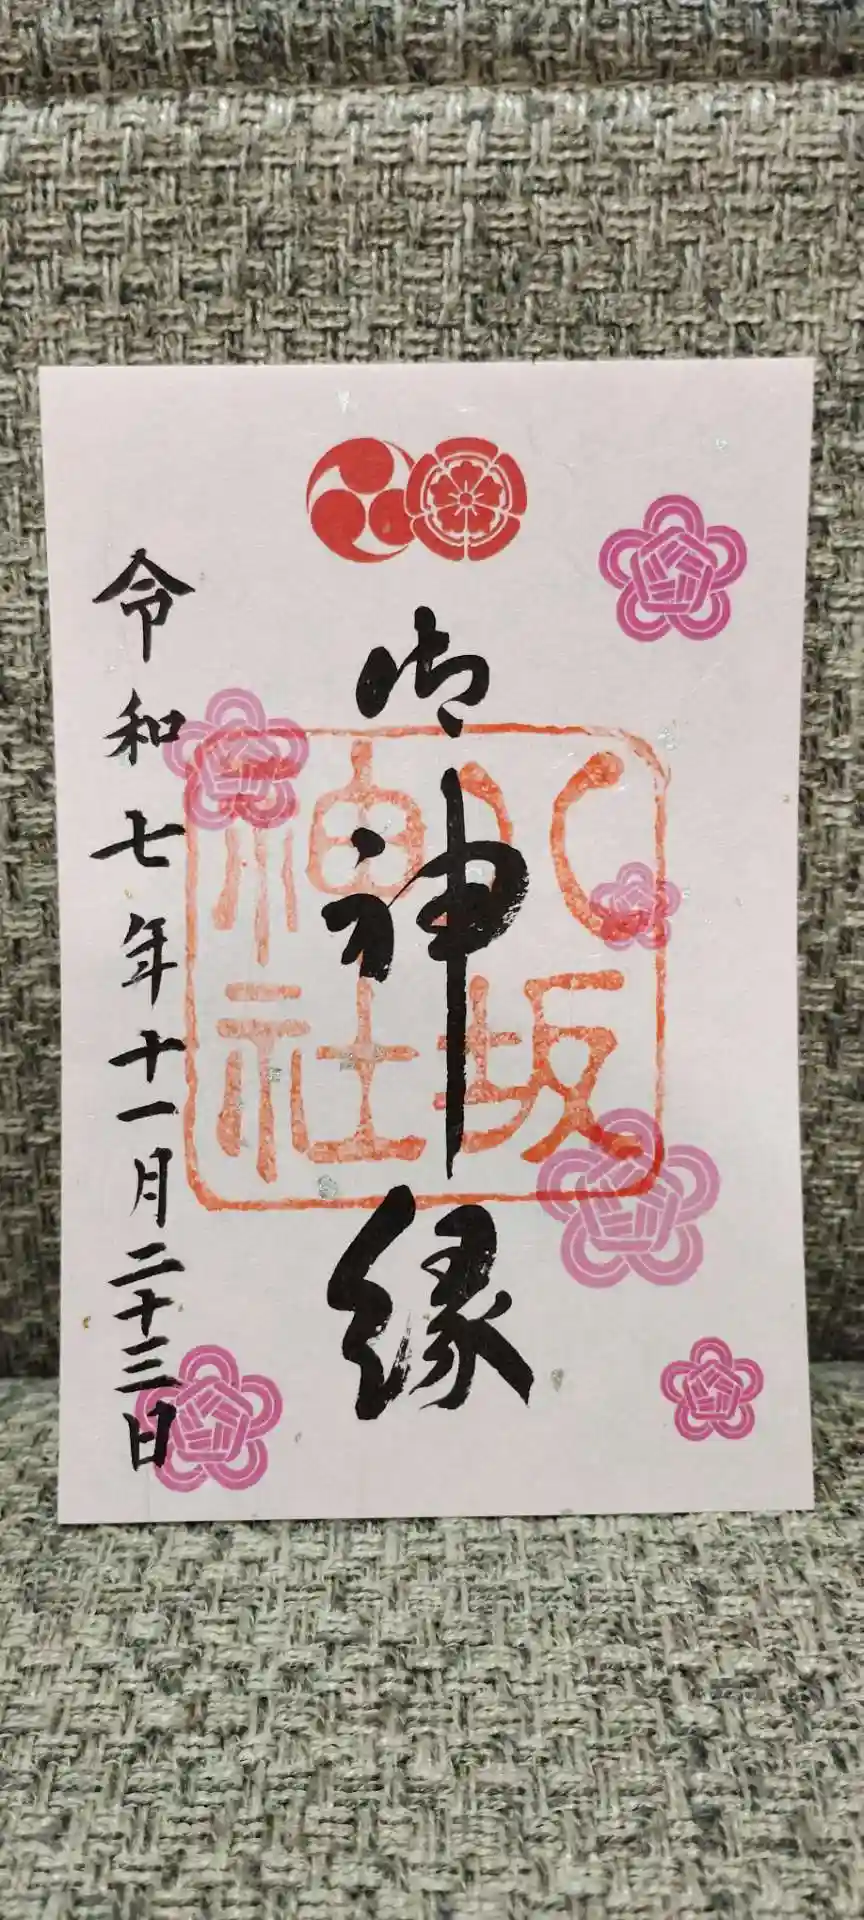 御神縁
八坂
神社
令和七年十一月二十三日